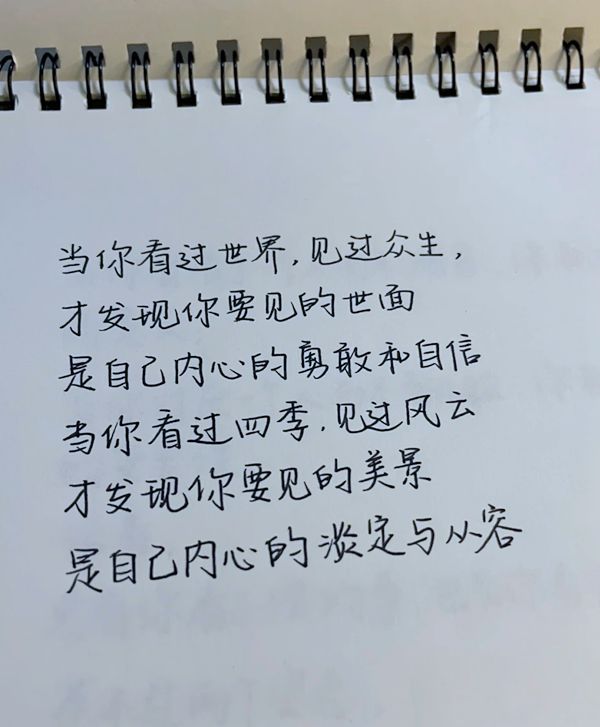 当你看过世界,见过众生,
才发现你要见的世面
是自己内心的勇敢和自信
当你看过四季,见过风云
才发现你要见的美景
是自己内心的淡定与从容